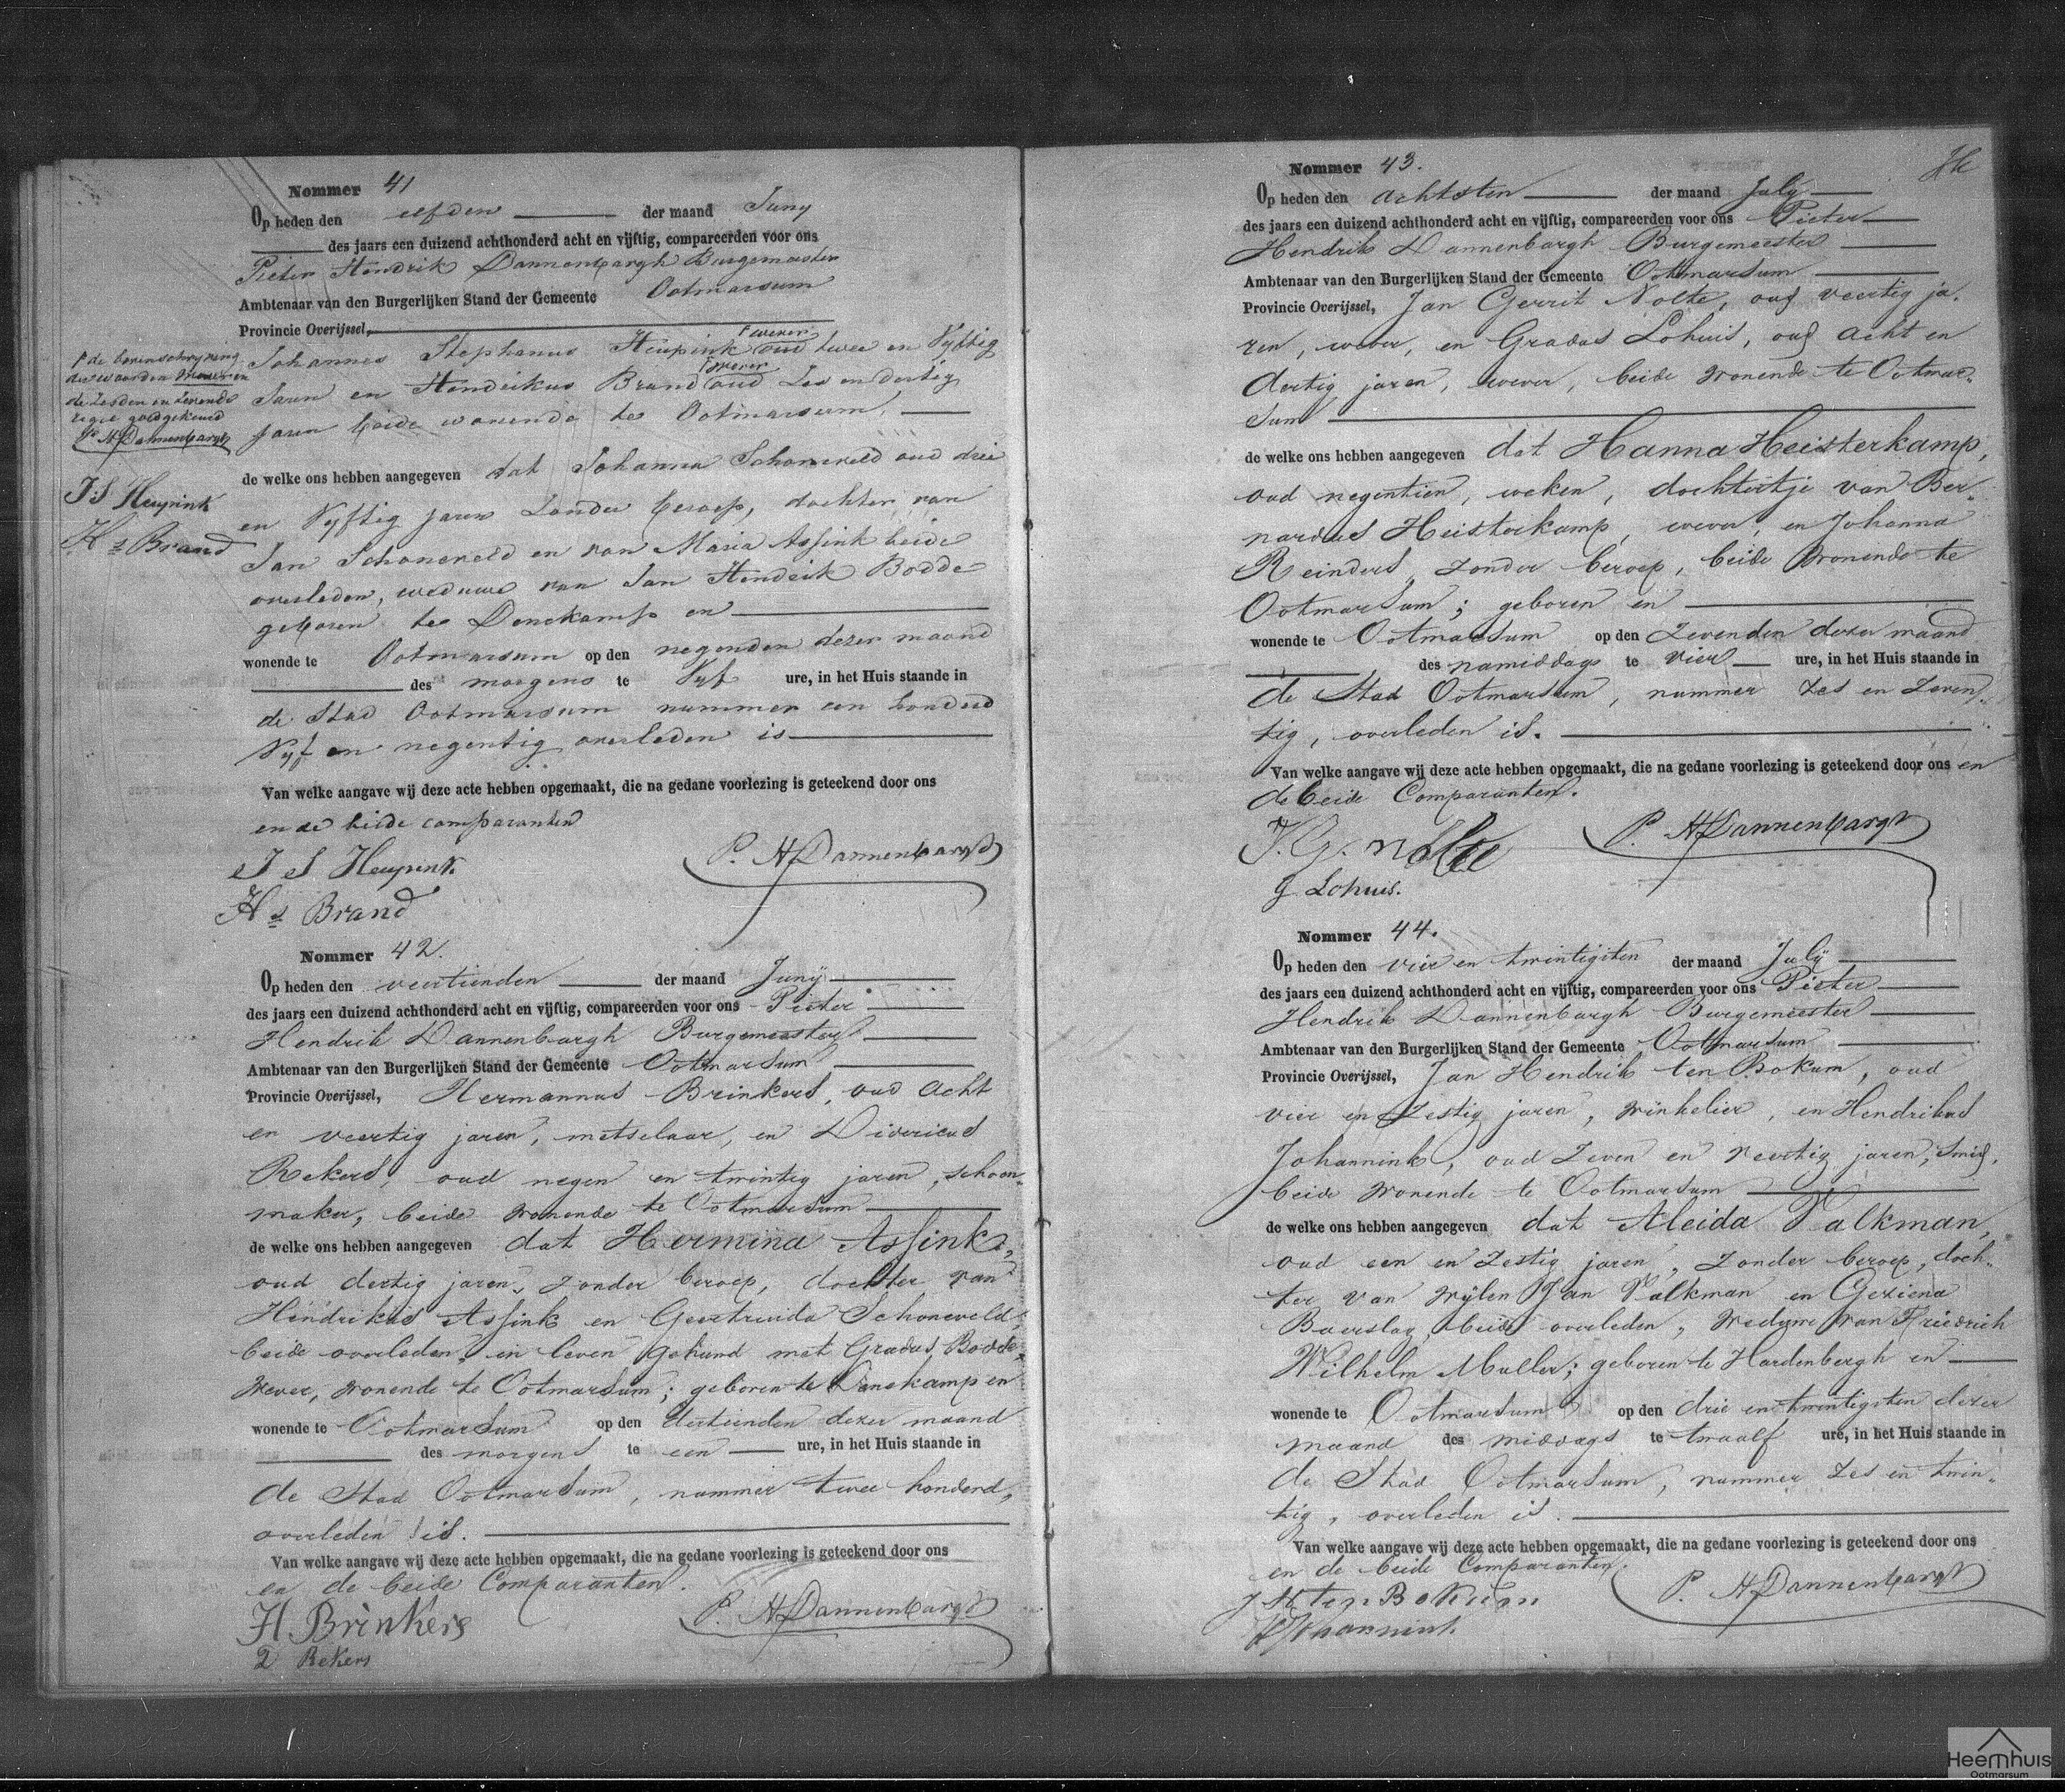 Nommer 41
Op heden den elfden der maand Juny
des jaars een duizend achthonderd acht en vijftig, compareerden voor ons
Pieter Hendrik Dannenbargh Burgemeester
Ambtenaar van den Burgerlijken Stand der Gemeente Ootmarsum
Provincie Overijssel,
Johannes Stephanus Heupink oud twee en Vyftig
wever
Jaren en Hendrikus Brand oud Zes en dertig
wever
jaren beide wonende te Ootmarsum,
de bovenschryving
der woorden wever en
de zesden en zevende
regel goedgekeurd
P. H Dannenbargh
J. S Heupink
Hs Brand
de welke ons hebben aangegeven dat Johanna Schoneveld oud drie
en Vyftig jaren Zonder beroep, dochter van
Jan Schoneveld en van Maria Assink beide
overleden, weduwe van Jan Hendrik Bodde
geboren te Denekamp en
wonende te Ootmarsum op den negenden dezer maand
des morgens te Vyf ure, in het Huis staande in
de Stad Ootmarsum nummer een honderd
Vyf en negentig overleden is
Van welke aangave wij deze acte hebben opgemaakt, die na gedane voorlezing is geteekend door ons
en de beide comparanten
J S Heupink
P. H Dannenbargh
Hs Brand
Nommer 42.
Op heden den veertienden der maand Junij
des jaars een duizend achthonderd acht en vijftig, compareerden voor ons Pieter
Hendrik Dannenbargh Burgemeester
Ambtenaar van den Burgerlijken Stand der Gemeente Ootmarsum
Provincie Overijssel, Hermannus Brinkers, oud acht
en veertig jaren, metselaar, en Divericus
Rekers, oud negen en twintig jaren, schoen-
maker, beide wonende te Ootmarsum
de welke ons hebben aangegeven dat Hermina Assink,
oud dertig jaren, zonder beroep, dochter van
Hendrikus Assink en Geertruida Schoneveld,
beide overleden, in leven gehuwd met Gradus Bodde,
wever, wonende te Ootmarsum; geboren te Denekamp en
wonende te Ootmarsum op den dertienden dezer maand
des morgens te een ure, in het Huis staande in
de Stad Ootmarsum, nummer twee honderd,
overleden is.
Van welke aangave wij deze acte hebben opgemaakt, die na gedane voorlezing is geteekend door ons
en de beide Comparanten.
H. Brinkers
P. H Dannenbargh
D Rekers
Nommer 43.
Op heden den achtsten der maand July
des jaars een duizend achthonderd acht en vijftig, compareerden voor ons Pieter
Hendrik Dannenbargh Burgemeester
Ambtenaar van den Burgerlijken Stand der Gemeente Ootmarsum
Provincie Overijssel, Jan Gerrit Nolte, oud veertig ja-
ren, wever, en Gradus Lohuis, oud acht en
dertig jaren, wever, beide wonende te Ootmar-
sum
de welke ons hebben aangegeven dat Hanna Heisterkamp,
oud negentien, weken, dochtertje van Ber-
nardus Heisterkamp, wever, en Johanna
Reinders, zonder beroep, beide wonende te
Ootmarsum; geboren en
wonende te Ootmarsum op den zevenden dezer maand
des namiddags te vier ure, in het Huis staande in
de Stad Ootmarsum, nummer zes en zeven-
tig, overleden is.
Van welke aangave wij deze acte hebben opgemaakt, die na gedane voorlezing is geteekend door ons en
de beide Comparanten.
J. G. Nolte
P. H Dannenbargh
G Lohuis.
Nommer 44.
Op heden den vier en twintigsten der maand July
des jaars een duizend achthonderd acht en vijftig, compareerden voor ons Pieter
Hendrik Dannenbargh Burgemeester
Ambtenaar van den Burgerlijken Stand der Gemeente Ootmarsum
Provincie Overijssel, Jan Hendrik ten Bokum, oud
vier en zestig jaren, winkelier, en Hendrikus
Johannink, oud zeven en veertig jaren, smid,
beide wonende te Ootmarsum
de welke ons hebben aangegeven dat Aleida Valkman,
oud een en zestig jaren, zonder beroep, doch-
ter van wijlen Jan Valkman en Geziena
Baerslag, beide overleden, weduwe van Friedrich
Wilhelm Muller; geboren te Hardenbergh en
wonende te Ootmarsum op den drie en twintigsten dezer
maand des middags te twaalf ure, in het Huis staande in
de Stad Ootmarsum, nummer zes en twin-
tig, overleden is.
Van welke aangave wij deze acte hebben opgemaakt, die na gedane voorlezing is geteekend door ons
en de beide Comparanten.
J H ten Bokum
P. H Dannenbargh
H Johannink.
Heemhuis
Ootmarsum